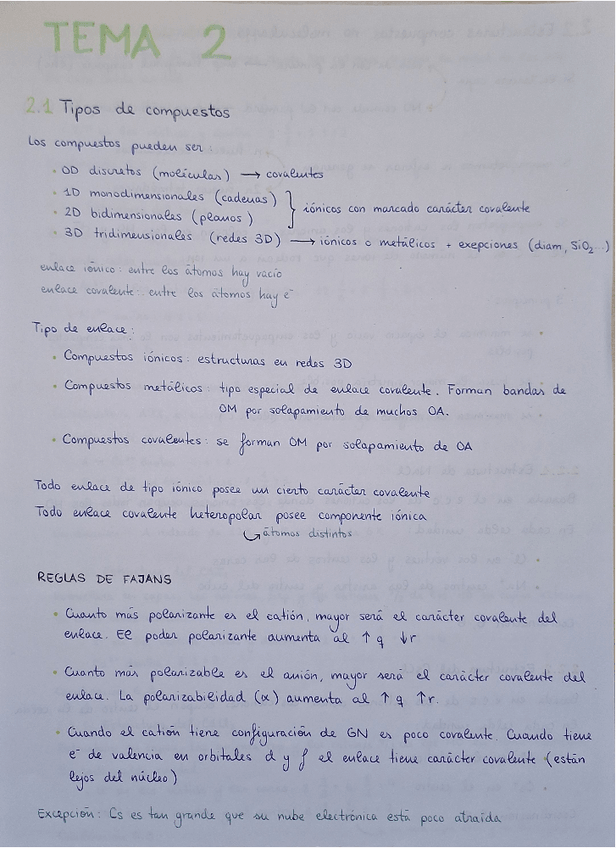 TEMA 2
2.1 Tipos de compuestos
Los compuestos pueden ser:
• 0D discretos (moléculas) → covalentes
• 1D monodimensionales (cadenas)
• 2D bidimensionales (planos)
} iónicos con marcado carácter covalente
• 3D tridimensionales (redes 3D) → iónicos o metálicos + exepciones (diam, SiO₂...)
enlace iónico: entre los átomos hay vacío
enlace covalente: entre los átomos hay e⁻
Tipo de enlace:
• Compuestos iónicos: estructuras en redes 3D
• Compuestos metálicos: tipo especial de enlace covalente. Forman bandas de
OM por solapamiento de muchos OA.
• Compuestos covalentes: se forman OM por solapamiento de OA
Todo enlace de tipo iónico posee un cierto carácter covalente
Todo enlace covalente heteropolar posee componente iónica
↪ átomos distintos
REGLAS DE FAJANS
• Cuanto más polarizante es el catión, mayor será el carácter covalente del
enlace. El poder polarizante aumenta al ↑ q ↓ r
• Cuanto más polarizable es el anión, mayor será el carácter covalente del
enlace. La polarizabilidad (α) aumenta al ↑ q ↑ r.
• Cuando el catión tiene configuración de GN es poco covalente. Cuando tiene
e⁻ de valencia en orbitales d y f el enlace tiene carácter covalente (están
lejos del núcleo)
Excepción: Cs es tan grande que su nube electrónica está poco atraída